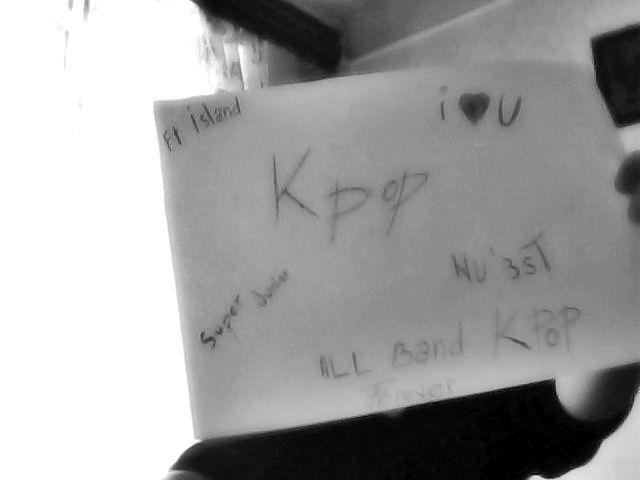 Ft island
i ♥ U
Kpop
NU'3sT
Super Junior
ALL Band KPOP
Forever